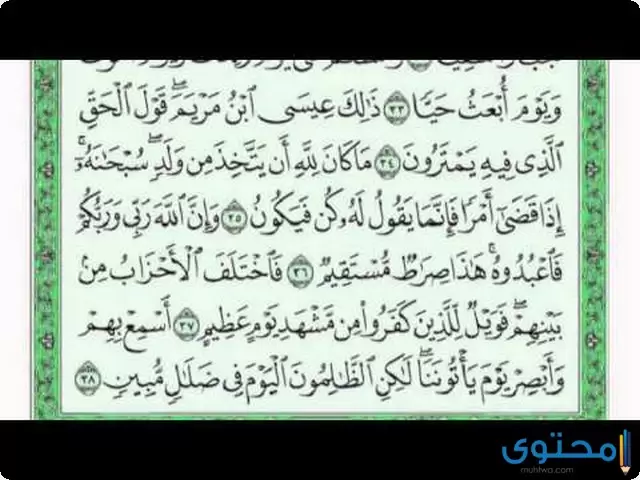 وَيَوْمَ أُبْعَثُ حَيًّا ٣٣ ذَٰلِكَ عِيسَى ابْنُ مَرْيَمَ ۖ قَوْلَ الْحَقِّ
الَّذِي فِيهِ يَمْتَرُونَ ٣٤ مَا كَانَ لِلَّهِ أَن يَتَّخِذَ مِن وَلَدٍ ۖ سُبْحَانَهُ ۚ
إِذَا قَضَىٰ أَمْرًا فَإِنَّمَا يَقُولُ لَهُ كُن فَيَكُونُ ٣٥ وَإِنَّ اللَّهَ رَبِّي وَرَبُّكُمْ
فَاعْبُدُوهُ ۚ هَٰذَا صِرَاطٌ مُّسْتَقِيمٌ ٣٦ فَاخْتَلَفَ الْأَحْزَابُ مِن
بَيْنِهِمْ ۖ فَوَيْلٌ لِّلَّذِينَ كَفَرُوا مِن مَّشْهَدِ يَوْمٍ عَظِيمٍ ٣٧ أَسْمِعْ بِهِمْ
وَأَبْصِرْ يَوْمَ يَأْتُونَنَا ۖ لَٰكِنِ الظَّالِمُونَ الْيَوْمَ فِي ضَلَالٍ مُّبِينٍ ٣٨
محتوى
muhtwa.com